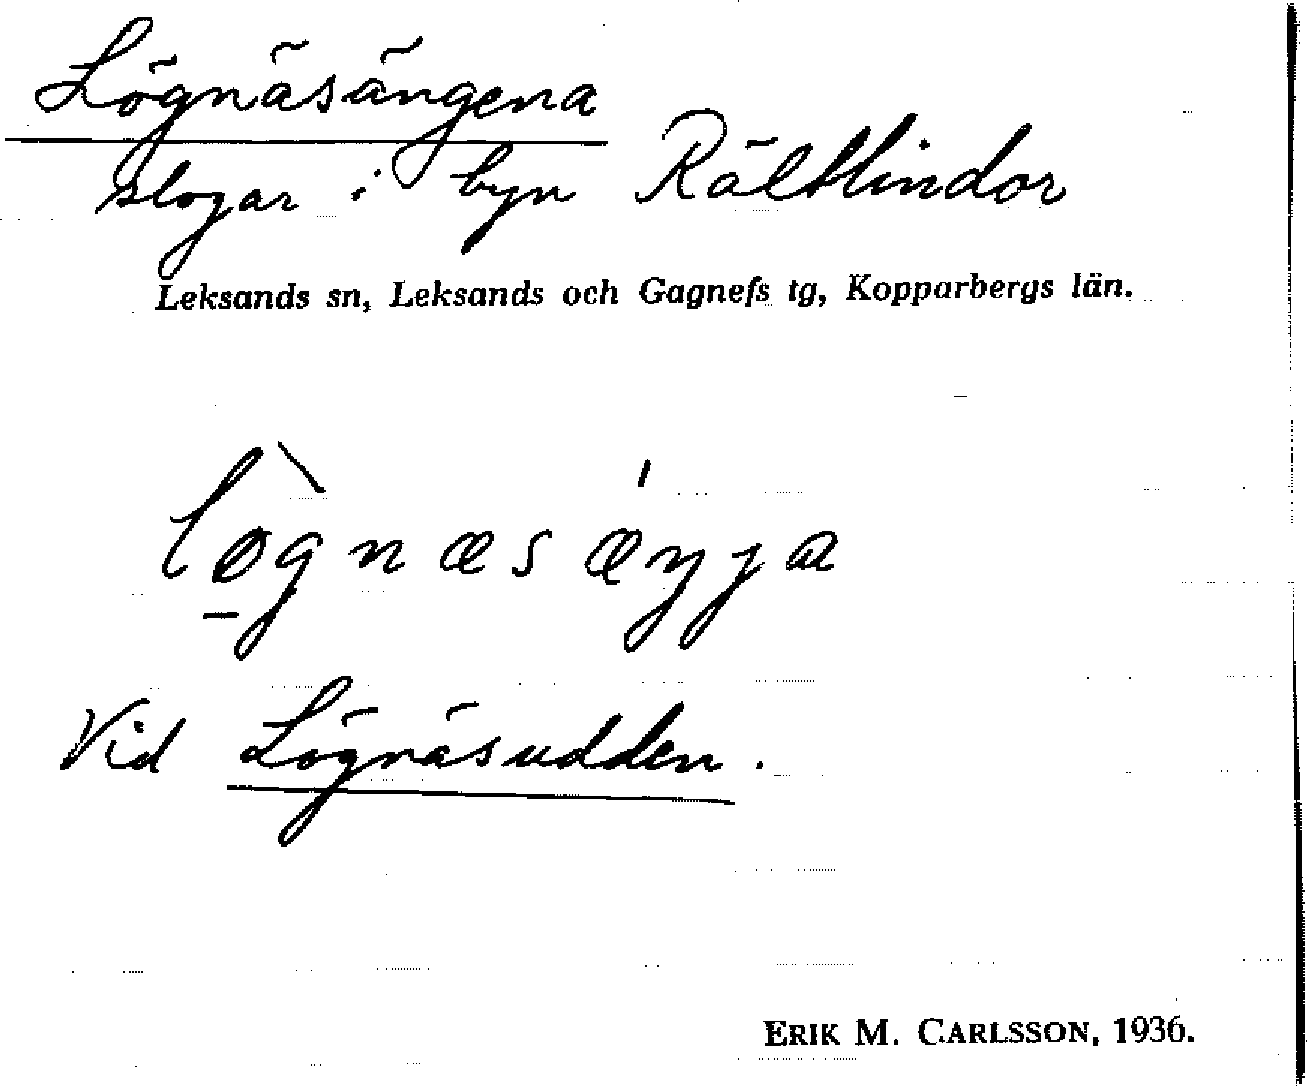 Lögnäsängena
slogar i byn Rältlindor
Leksands sn, Leksands och Gagnefs tg, Kopparbergs län.
lø̠̀gnæsǽŋja
Vid Lögnäsudden.
ERIK M. CARLSSON, 1936.